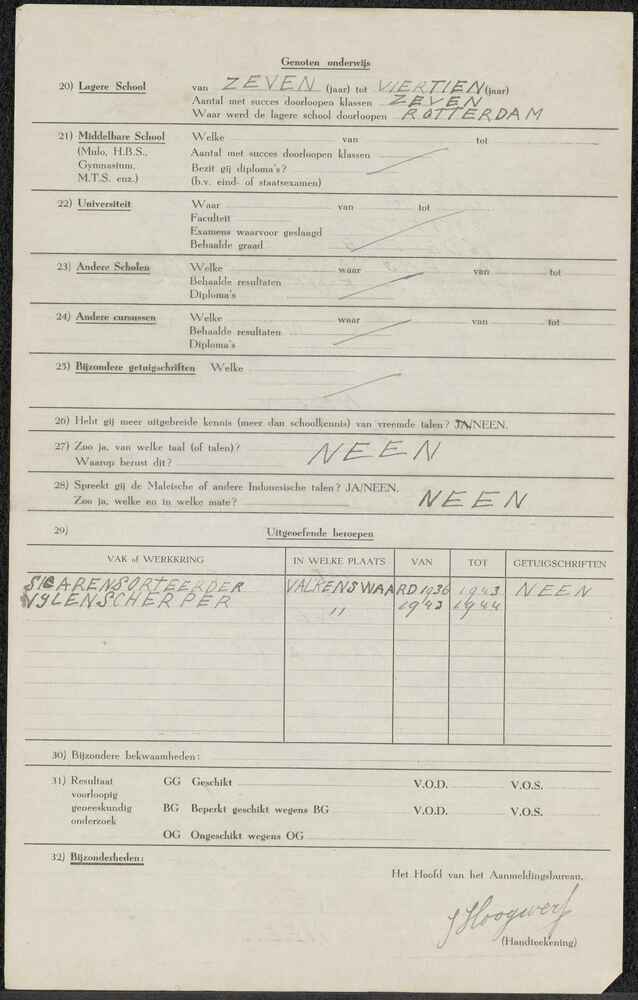 Genoten onderwijs
20) Lagere School van ZEVEN (jaar) tot VIERTIEN (jaar)
Aantal met succes doorloopen klassen ZEVEN
Waar werd de lagere school doorloopen ROTTERDAM
21) Middelbare School Welke van tot
(Mulo, H.B.S., Aantal met succes doorloopen klassen
Gymnasium, Bezit gij diploma's?
M.T.S. enz.) (b.v. eind- of staatsexamen)
22) Universiteit Waar van tot
Faculteit
Examens waarvoor geslaagd
Behaalde graad
23) Andere Scholen Welke waar van tot
Behaalde resultaten
Diploma's
24) Andere cursussen Welke waar van tot
Behaalde resultaten
Diploma's
25) Bijzondere getuigschriften Welke
26) Hebt gij meer uitgebreide kennis (meer dan schoolkennis) van vreemde talen? JA/NEEN.
27) Zoo ja, van welke taal (of talen)? NEEN
Waarop berust dit?
28) Spreekt gij de Maleische of andere Indonesische talen? JA/NEEN.
Zoo ja, welke en in welke mate? NEEN
29) Uitgeoefende beroepen
VAK of WERKKRING IN WELKE PLAATS VAN TOT GETUIGSCHRIFTEN
SIGARENSORTEERDER VALKENSWAARD 1936 1943 NEEN
VYLENSCHERPER " 1943 1944
30) Bijzondere bekwaamheden:
31) Resultaat GG Geschikt V.O.D. V.O.S.
voorloopig
geneeskundig BG Beperkt geschikt wegens BG V.O.D. V.O.S.
onderzoek
OG Ongeschikt wegens OG
32) Bijzonderheden:
Het Hoofd van het Aanmeldingsbureau,
J Hoogwerf
(Handteekening)